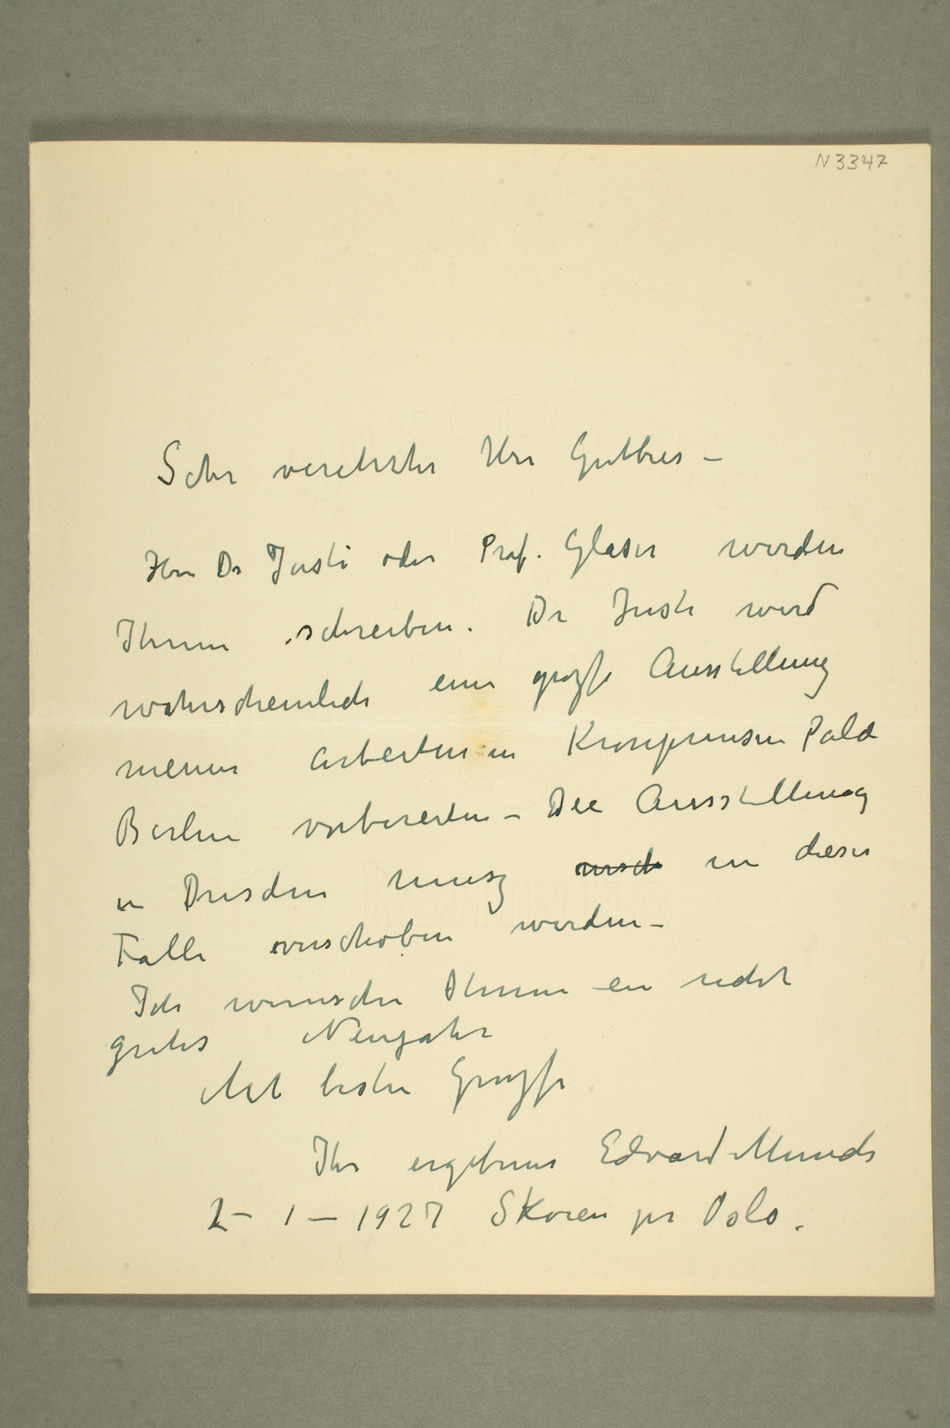 N 3347
Sehr verehrter Herr Gutbier –
Herr Dr Justi oder Prof. Glaser werden
Ihnen schreiben. Dr Justi wird
wahrscheinlich eine grosse Ausstellung
meiner Arbeiten in Kronprinsen Palä
Berlin vorbereiten – Die Ausstellung
in Dresden musz in dieser
Falle verschoben werden –
Ich wünsche Ihnen ein recht
gutes Neujahr
Mit besten Grüsse
Ihr ergebener Edvard Munch
2 – 1 – 1927 Skøien pr Oslo.